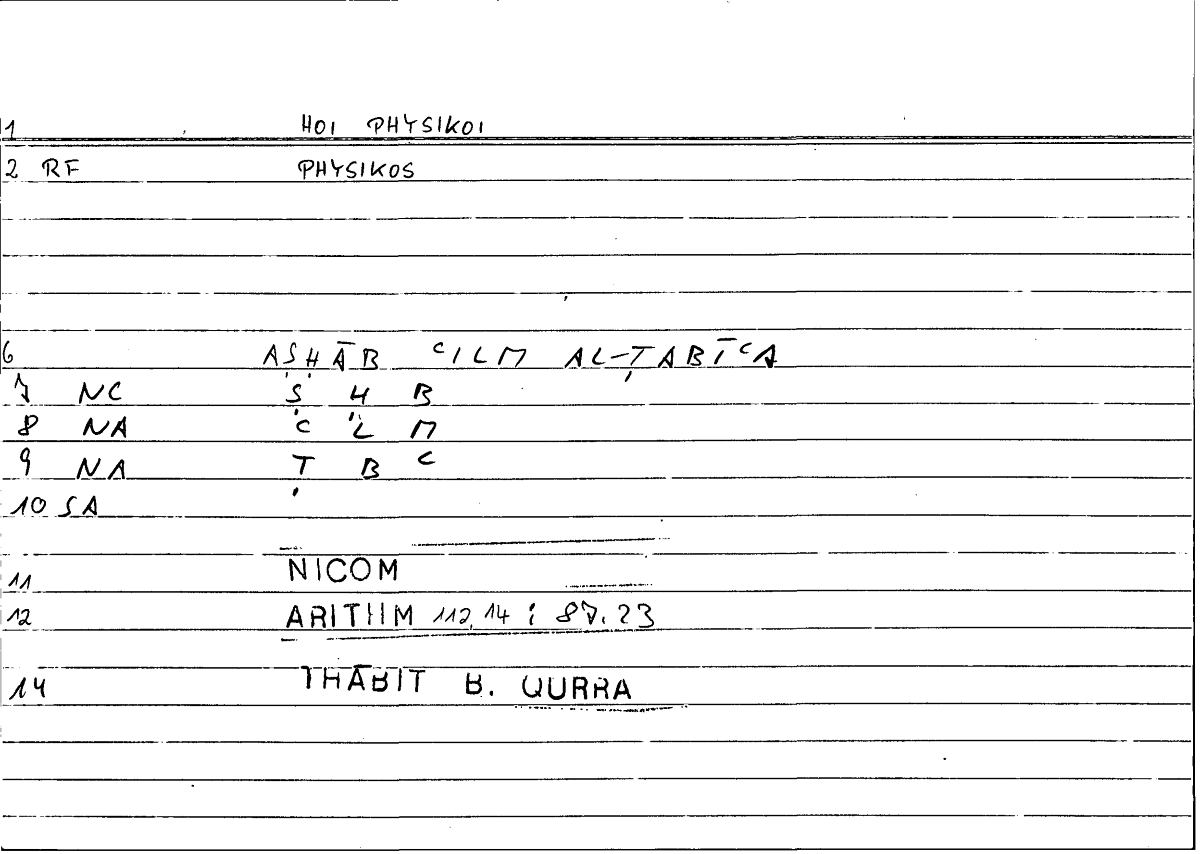 1 HOI PHYSIKOI
2 RF PHYSIKOS
6 AṢḤĀB ᶜILM AL-ṬABĪᶜA
7 NC Ṣ Ḥ B
8 NA ᶜ L M
9 NA Ṭ B ᶜ
10 SA
11 NICOM
12 ARITHM 112,14 : 87.23
14 THĀBIT B. QURRA